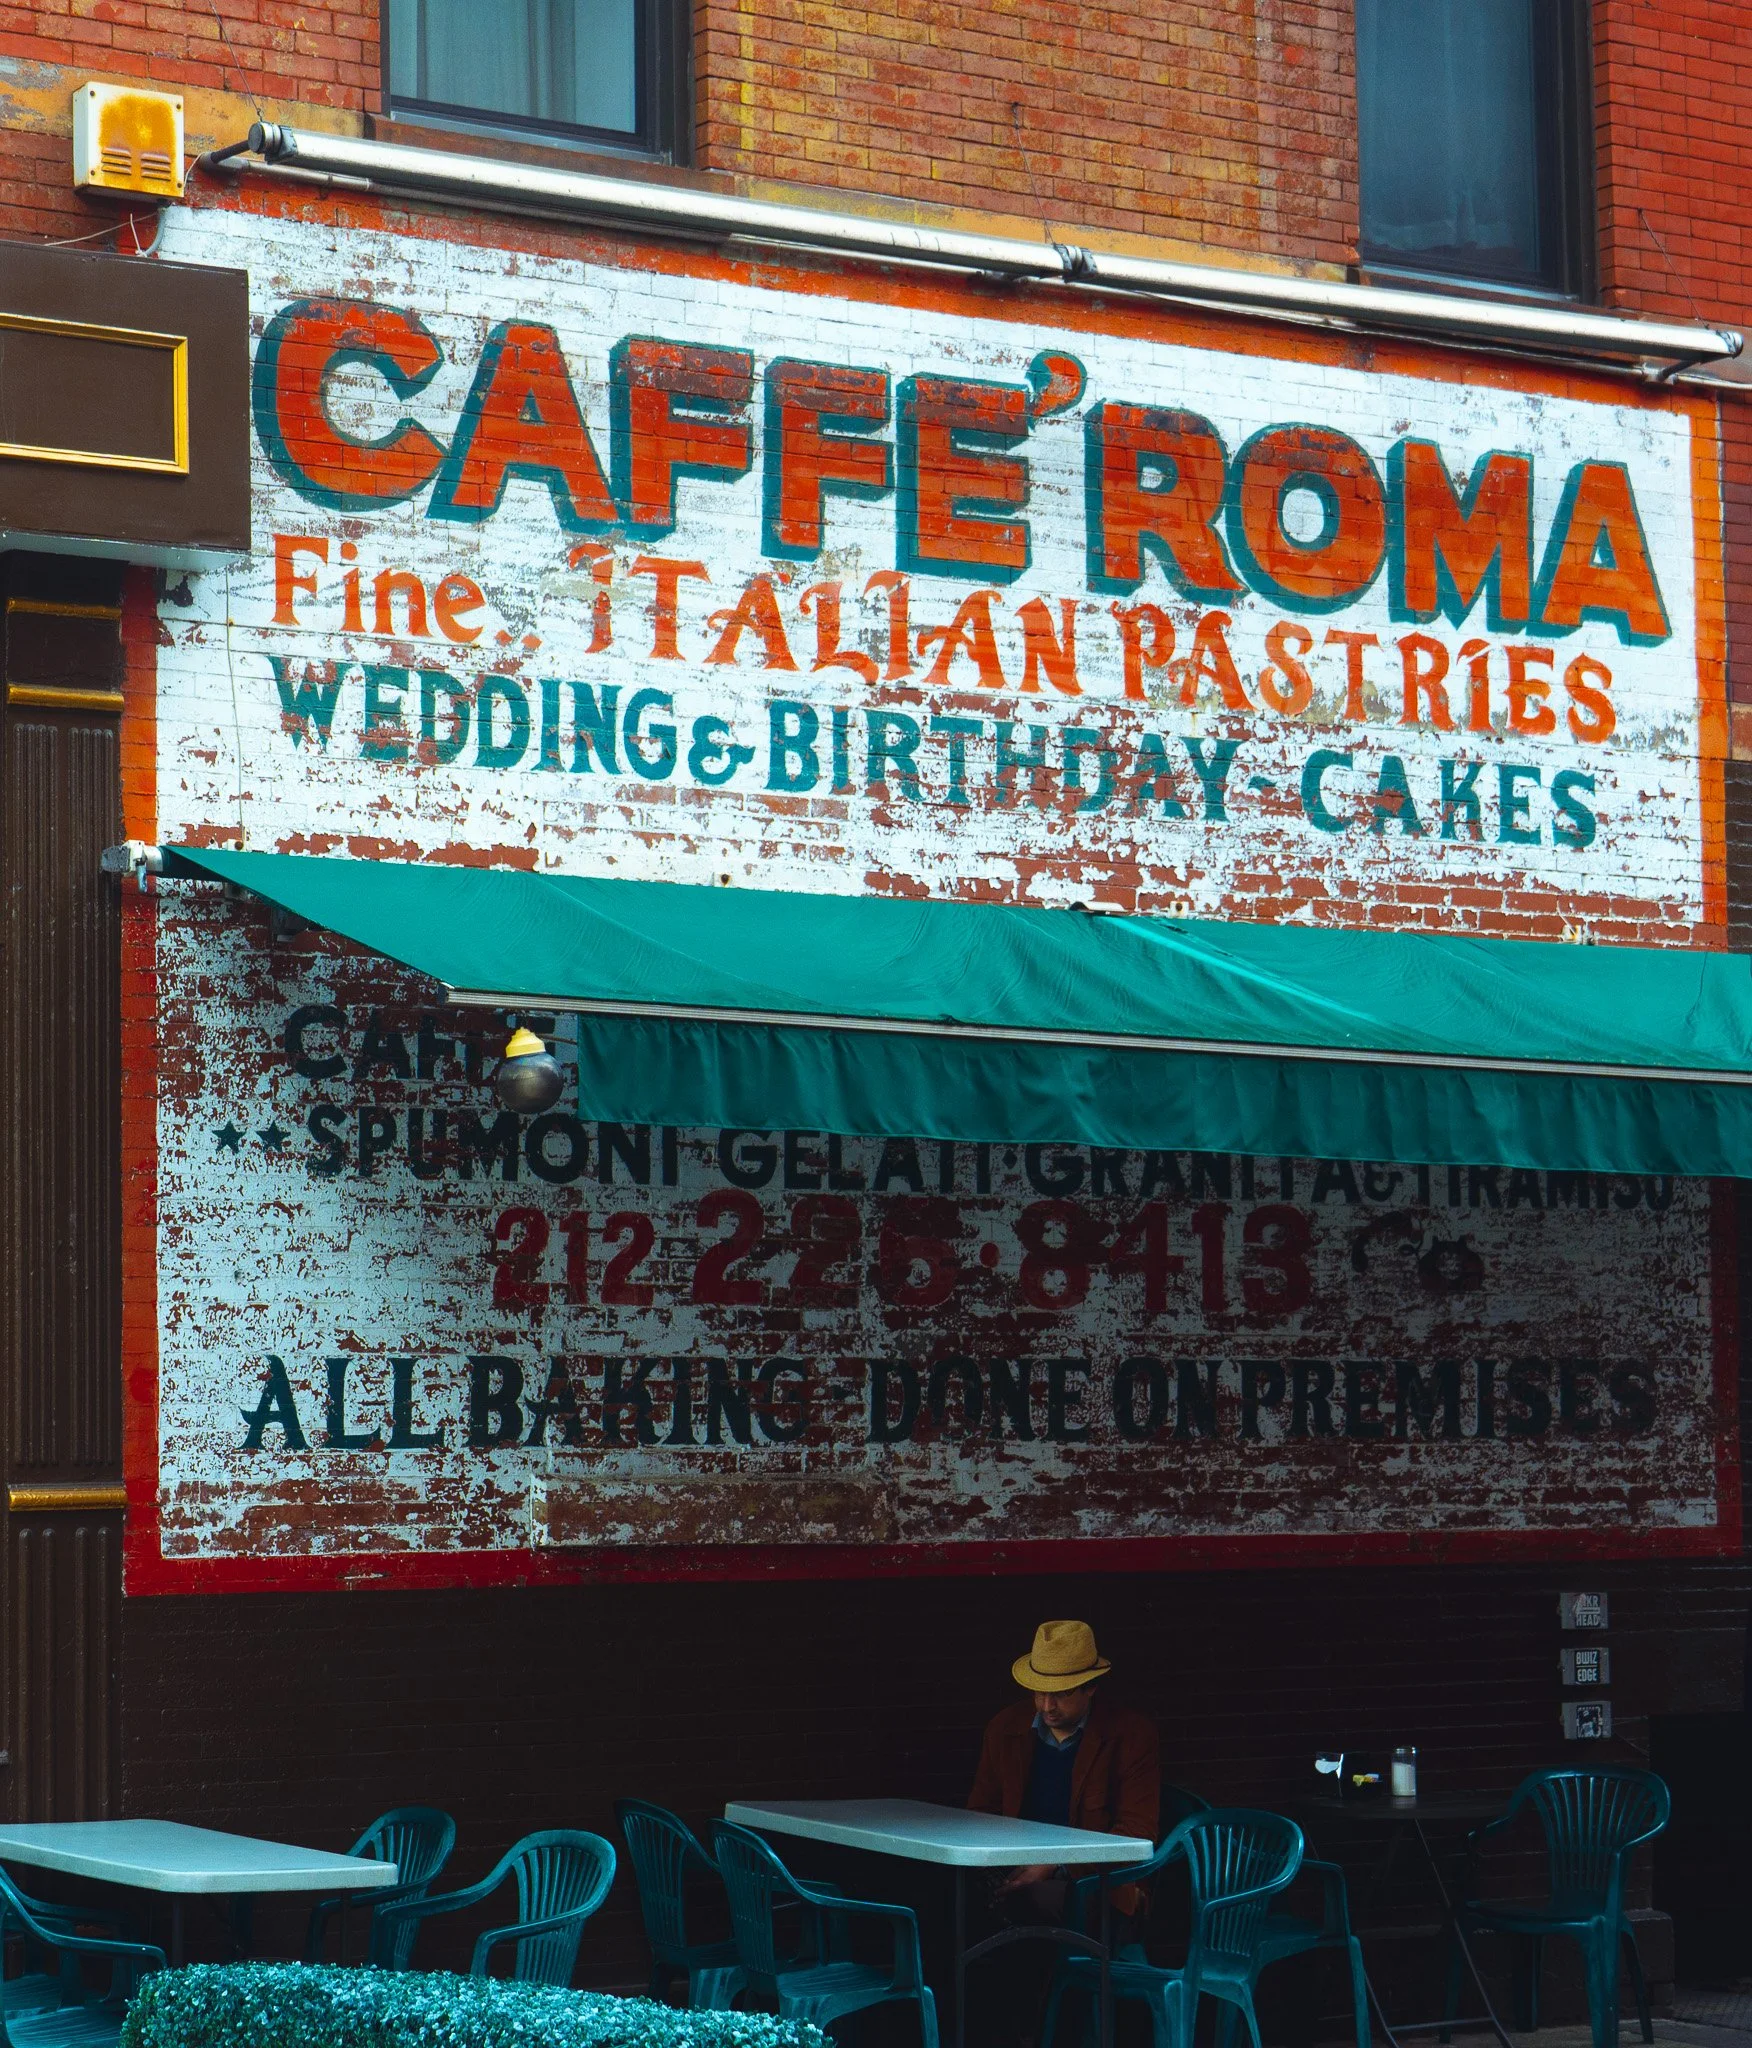 CAFFE' ROMA
Fine.. ITALIAN PASTRIES
WEDDING & BIRTHDAY - CAKES
CAFFE
** SPUMONI · GELATI · GRANITA & TIRAMISU
212 226·8413
ALL BAKING DONE ON PREMISES
HEAD
BWIZ
EDGE